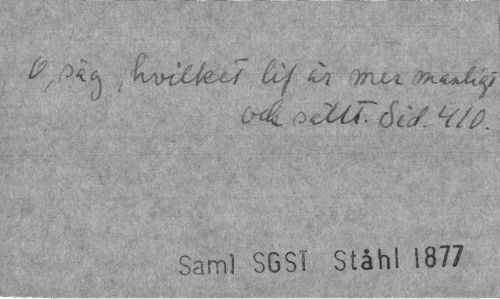 O, säg, hvilket lif är mer manligt
och sällt. Sid. 410.
Saml SGST Ståhl 1877